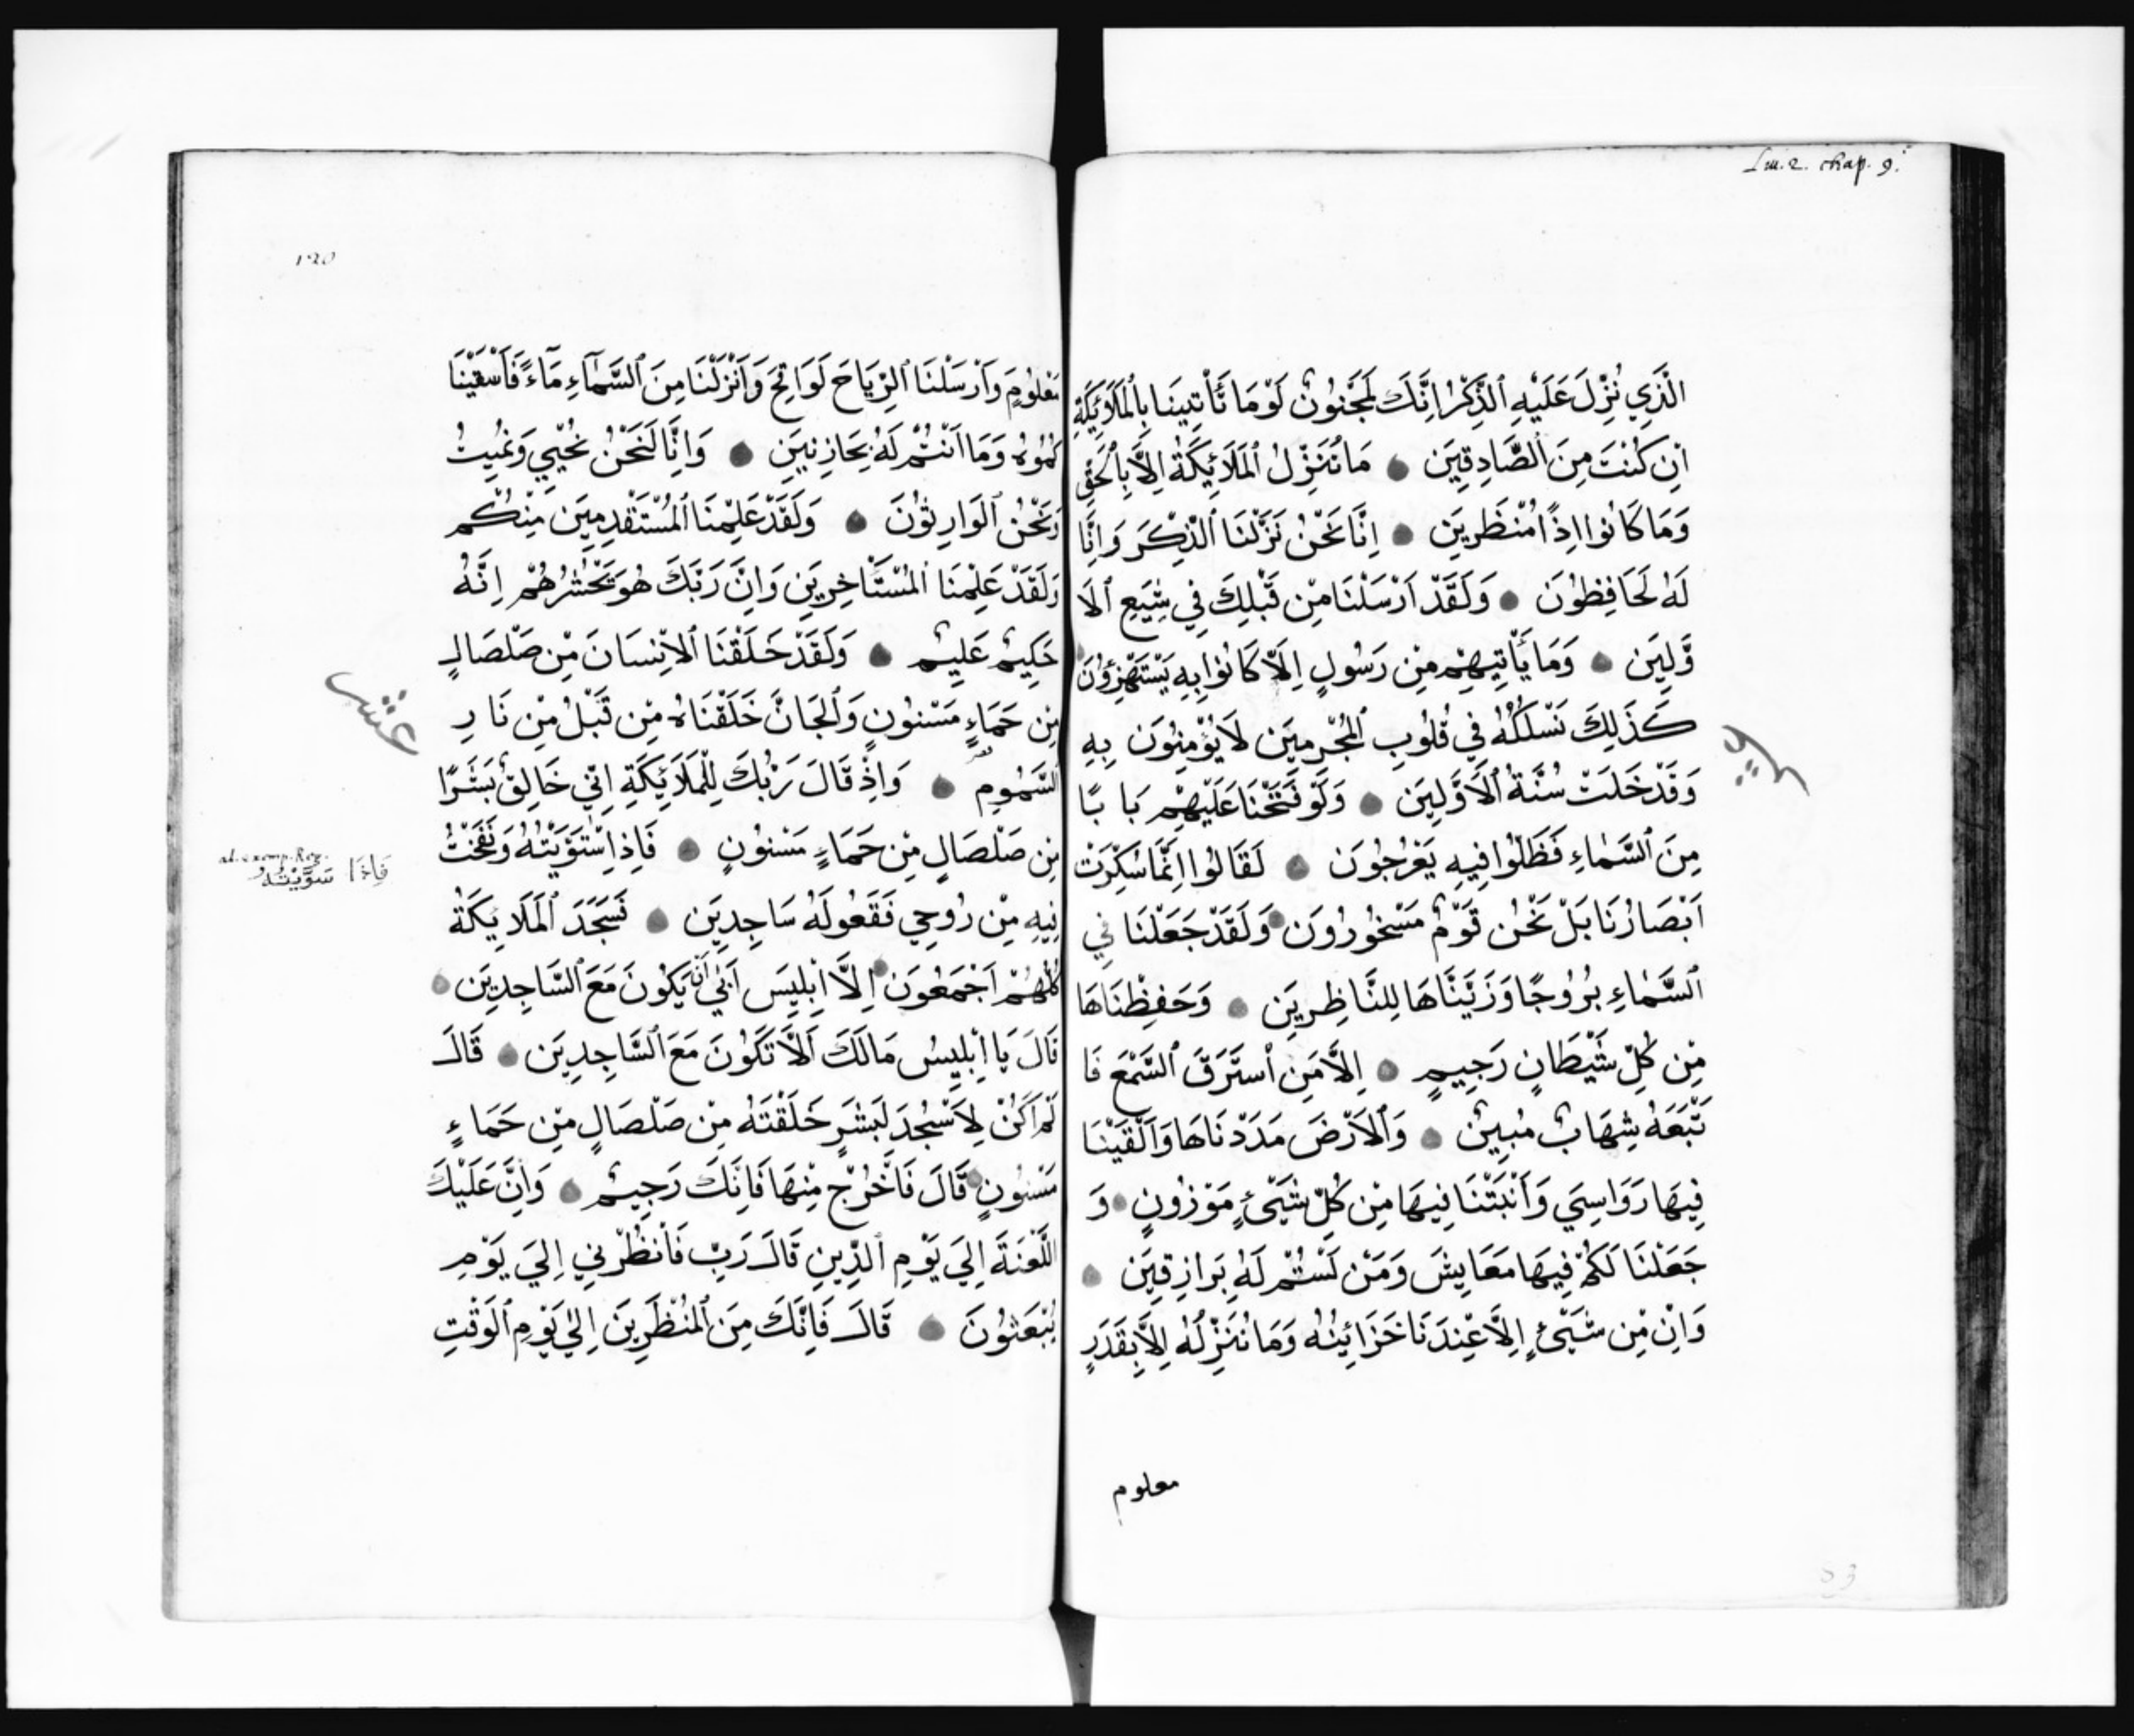 Lm. 2. chap. 9.
الَّذِي نُزِّلَ عَلَيْهِ ٱلذِّكْرُ اِنَّكَ لَمَجْنُونٌ لَوْمَا تَأْتِينَا بِٱلْمَلَائِكَةِ
اِنْ كُنْتَ مِنَ ٱلصَّادِقِينَ مَا نُنَزِّلُ ٱلْمَلَائِكَةَ اِلَّا بِٱلْحَقِّ
وَمَا كَانُوا اِذًا مُنْظَرِينَ اِنَّا نَحْنُ نَزَّلْنَا ٱلذِّكْرَ وَاِنَّا
لَهُ لَحَافِظُونَ وَلَقَدْ اَرْسَلْنَا مِنْ قَبْلِكَ فِي شِيَعِ ٱلاَ
وَّلِينَ وَمَا يَأْتِيهِمْ مِنْ رَسُولٍ اِلَّا كَانُوا بِهِ يَسْتَهْزِؤُنَ
كَذَلِكَ نَسْلُكُهُ فِي قُلُوبِ ٱلْمُجْرِمِينَ لَا يُؤْمِنُونَ بِهِ
وَقَدْ خَلَتْ سُنَّةُ ٱلْاَوَّلِينَ وَلَوْ فَتَحْنَا عَلَيْهِمْ بَا بًا
مِنَ ٱلسَّمَاءِ فَظَلُّوا فِيهِ يَعْرُجُونَ لَقَالُوا اِنَّمَا سُكِّرَتْ
اَبْصَارُنَا بَلْ نَحْنُ قَوْمٌ مَسْحُورُونَ وَلَقَدْ جَعَلْنَا فِي
ٱلسَّمَاءِ بُرُوجًا وَزَيَّنَّاهَا لِلنَّاظِرِينَ وَحَفِظْنَاهَا
مِنْ كُلِّ شَيْطَانٍ رَجِيمٍ اِلَّا مَنِ ٱسْتَرَقَ ٱلسَّمْعَ فَا
تْبَعَهُ شِهَابٌ مُبِينٌ وَٱلْاَرْضَ مَدَدْنَاهَا وَاَلْقَيْنَا
فِيهَا رَوَاسِيَ وَاَنْبَتْنَا فِيهَا مِنْ كُلِّ شَيْئٍ مَوْزُونٍ وَ
جَعَلْنَا لَكُمْ فِيهَا مَعَايِشَ وَمَنْ لَسْتُمْ لَهُ بِرَازِقِينَ
وَاِنْ مِنْ شَيْئٍ اِلَّا عِنْدَنَا خَزَائِنُهُ وَمَا نُنَزِّلُهُ اِلَّا بِقَدَرٍ
معلوم
83
120
مَعْلُومٍ وَاَرْسَلْنَا ٱلرِّيَاحَ لَوَاقِحَ وَاَنْزَلْنَا مِنَ ٱلسَّمَآءِ مَآءً فَاَسْقَيْنَا
كُمُوهُ وَمَا اَنْتُمْ لَهُ بِخَازِنِينَ وَاِنَّا لَنَحْنُ نُحْيِي وَنُمِيتُ
وَنَحْنُ ٱلْوَارِثُونَ وَلَقَدْ عَلِمْنَا ٱلْمُسْتَقْدِمِينَ مِنْكُمْ
وَلَقَدْ عَلِمْنَا ٱلْمُسْتَأْخِرِينَ وَاِنَّ رَبَّكَ هُوَ يَحْشُرُهُمْ اِنَّهُ
حَكِيمٌ عَلِيمٌ وَلَقَدْ خَلَقْنَا ٱلْاِنْسَانَ مِنْ صَلْصَالٍ
مِنْ حَمَاءٍ مَسْنُونٍ وَٱلْجَانَّ خَلَقْنَاهُ مِنْ قَبْلُ مِنْ نَارِ
عشر
ٱلسَّمُومِ وَاِذْ قَالَ رَبُّكَ لِلْمَلَائِكَةِ اِنِّي خَالِقٌ بَشَرًا
مِنْ صَلْصَالٍ مِنْ حَمَاءٍ مَسْنُونٍ فَاِذَا ٱسْتَوَيْتُهُ وَنَفَخْتُ
فَاِذَا سَوَّيْتُهُ
فِيهِ مِنْ رُوحِي فَقَعُوا لَهُ سَاجِدِينَ فَسَجَدَ ٱلْمَلَائِكَةُ
كُلُّهُمْ اَجْمَعُونَ اِلَّا اِبْلِيسَ اَبَى اَنْ يَكُونَ مَعَ ٱلسَّاجِدِينَ
قَالَ يَا اِبْلِيسُ مَالَكَ اَلَّا تَكُونَ مَعَ ٱلسَّاجِدِينَ قَالَ
لَمْ اَكُنْ لِاَسْجُدَ لَبَشَرٍ خَلَقْتَهُ مِنْ صَلْصَالٍ مِنْ حَمَاءٍ
مَسْنُونٍ قَالَ فَاَخْرُجْ مِنْهَا فَاِنَّكَ رَجِيمٌ وَاِنَّ عَلَيْكَ
اللَّعْنَةَ اِلَى يَوْمِ ٱلدِّينِ قَالَ رَبِّ فَاَنْظُرْنِي اِلَيَ يَوْمِ
يُبْعَثُونَ قَالَ فَاِنَّكَ مِنَ ٱلْمُنْظَرِينَ اِلَي يَوْمِ ٱلْوَقْتِ